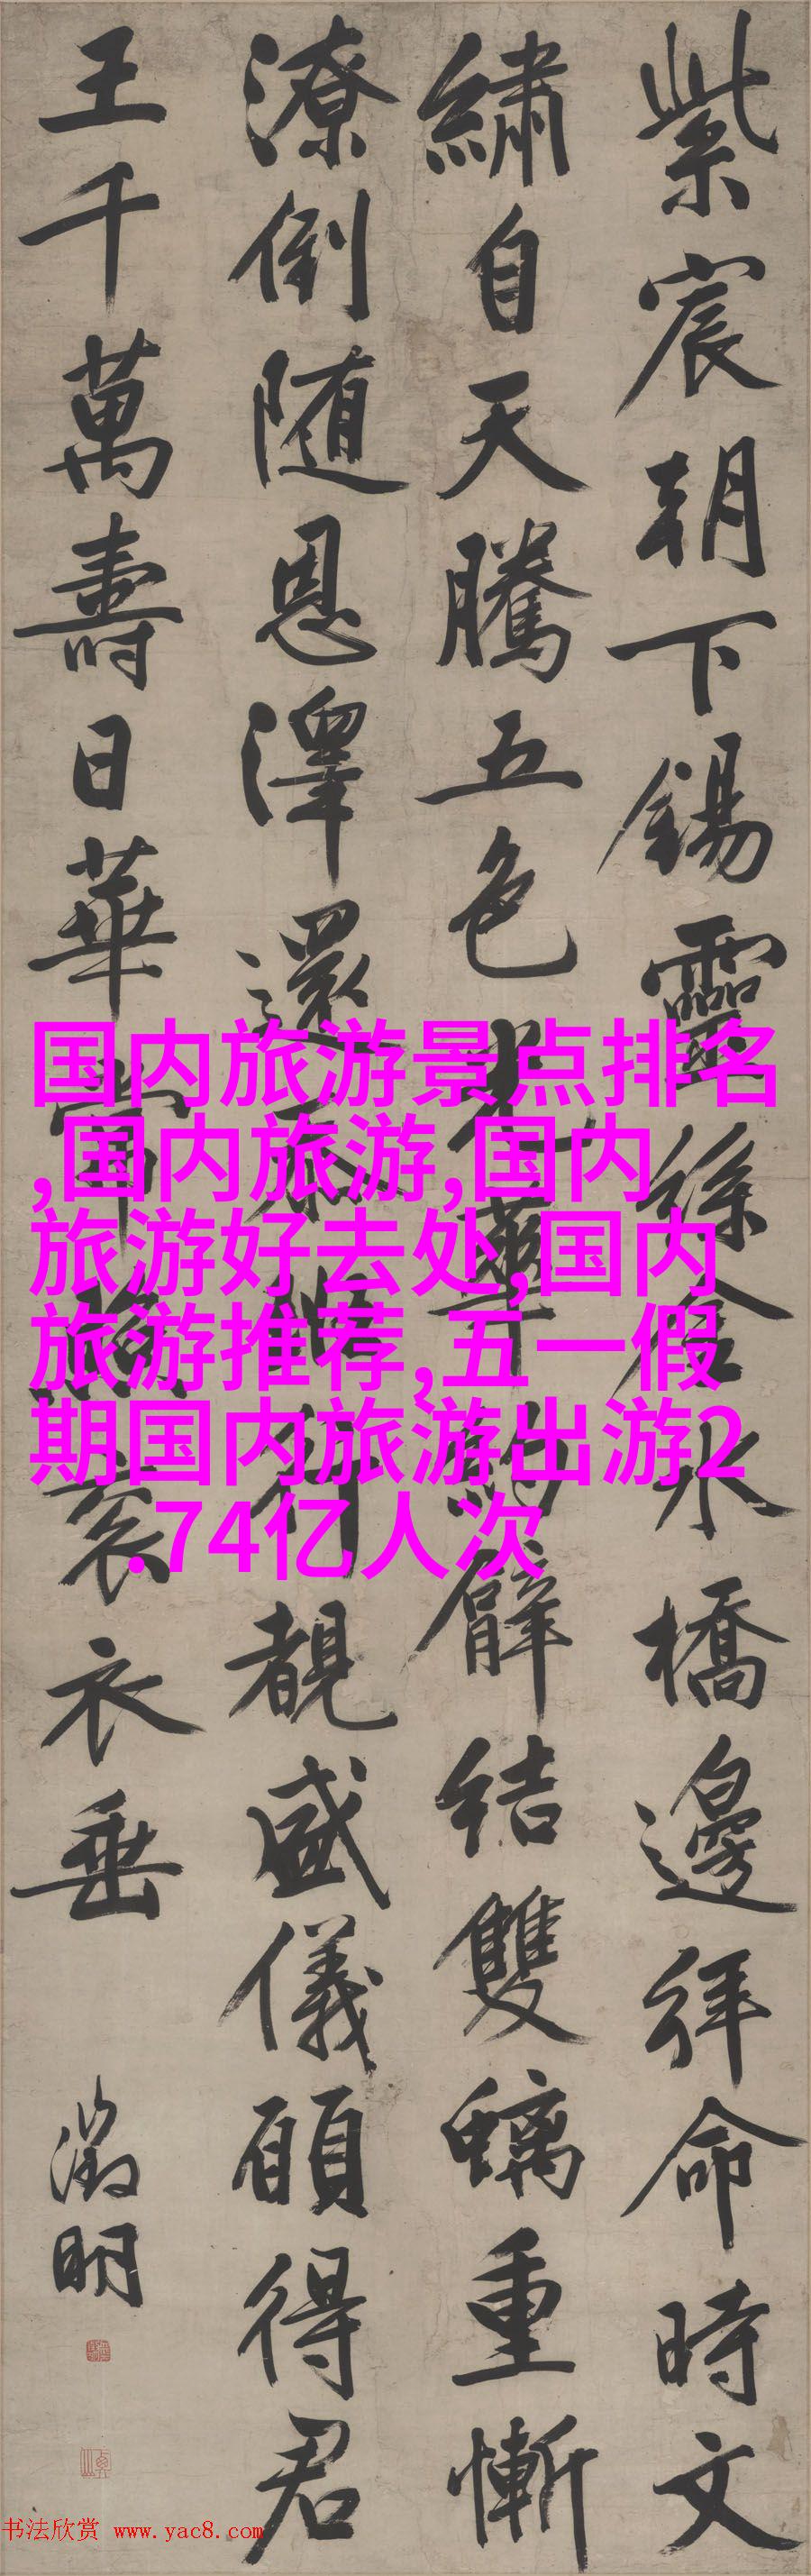 紫宸朝下錫靈絲金水橋邊拜命時文
繡自天騰五色光華約臂結雙螭重慚
潦倒随恩澤還忝班行覩盛儀願得君
王千萬壽日華常照袞衣垂
徵明
国内旅游景点排名
,国内旅游,国内
旅游好去处,国内
旅游推荐,五一假
期国内旅游出游2
.74亿人次
书法欣赏 www.yac8.com